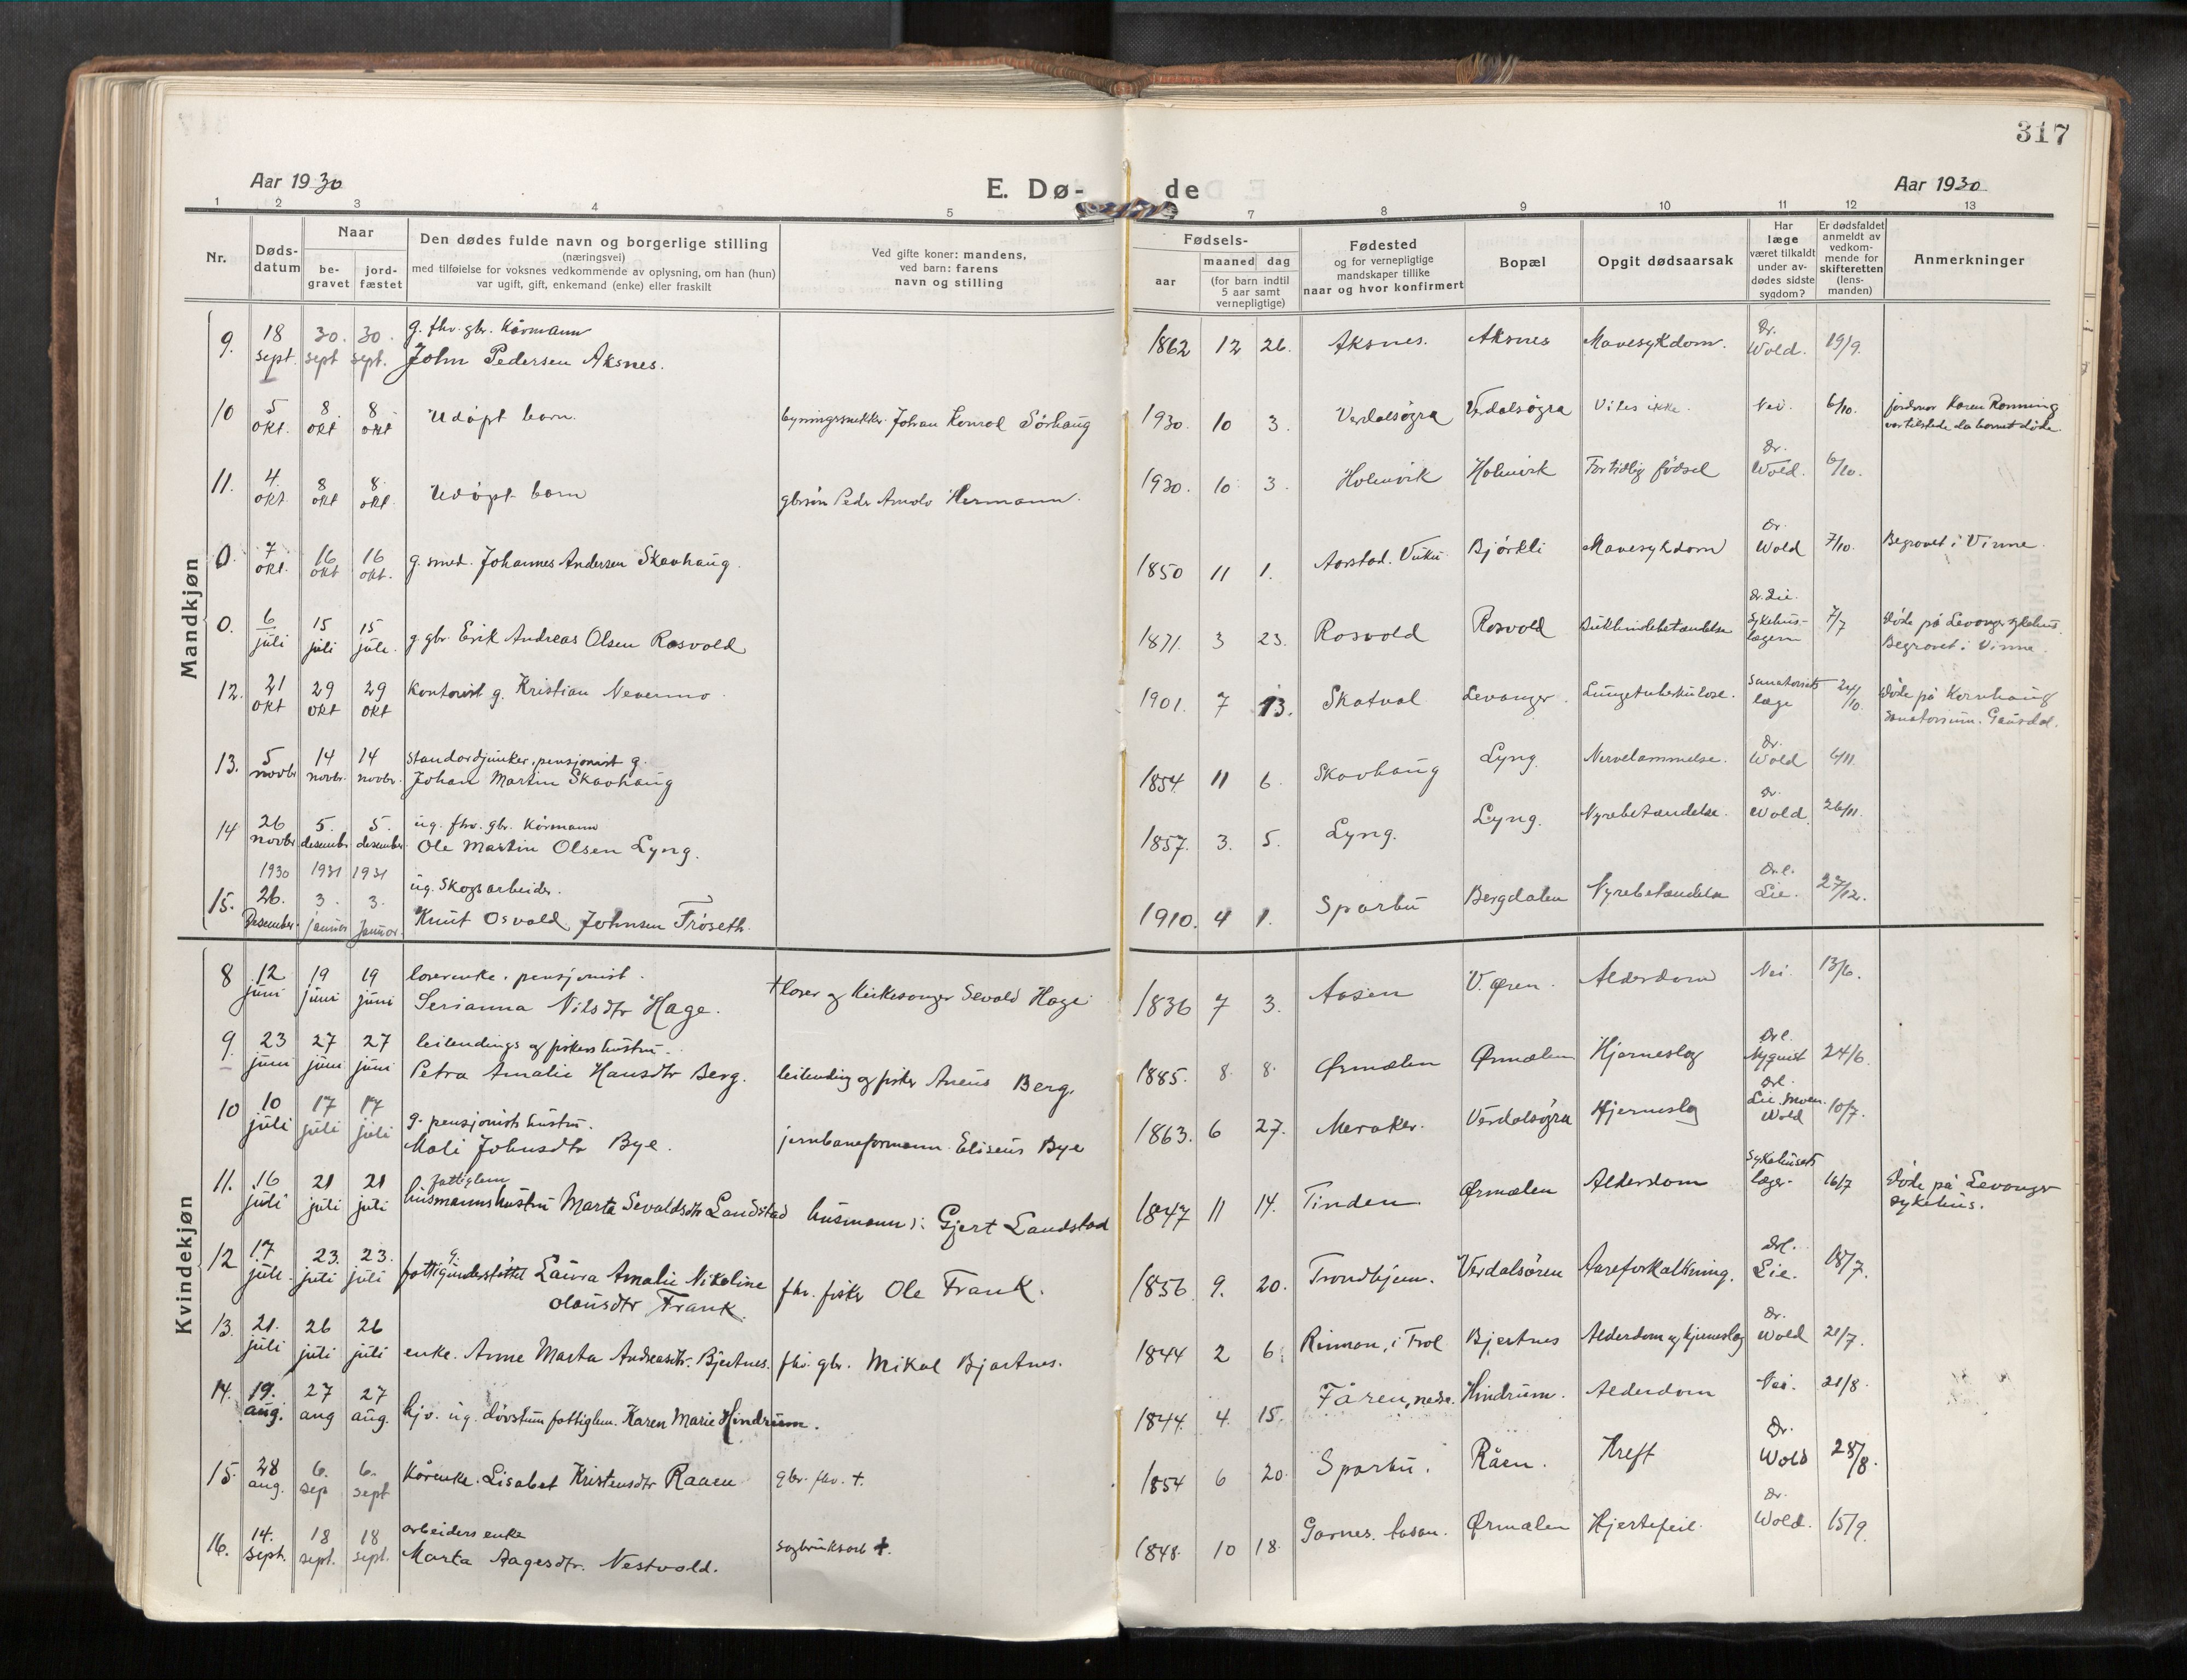 317
Aar 1930
E. Dø-
de
Aar 1930
1 2 3 4 5 7 8 9 10 11 12 13
Nr.
Døds-
datum
Naar
be-
gravet
jord-
fæstet
Den dødes fulde navn og borgerlige stilling
(næringsvei)
med tilføielse for voksnes vedkommende av oplysning, om han (hun)
var ugift, gift, enkemand (enke) eller fraskilt
Ved gifte koner: mandens,
ved barn: farens
navn og stilling
Fødsels-
aar
maaned dag
(for barn indtil
5 aar samt
vernepligtige)
Fødested
og for vernepligtige
mandskaper tillike
naar og hvor konfirmert
Bopæl
Opgit dødsaarsak
Har
læge
været tilkaldt
under av-
dødes sidste
sygdom?
Er dødsfaldet
anmeldt av
vedkom-
mende for
skifteretten
(lens-
manden)
Anmerkninger
Mandkjøn
9. 18 sept. 30. sept 30. sept. g. fhv. gbr. Kårmann
John Pedersen Aksnes. 1862 12 26. Aksnes. Aksnes Mavesykdom. Dr. Wold. 19/9.
10 5 okt. 8. okt 8 okt Udøpt barn. bygningssnekker Johan Konrad Sørhaug 1930. 10 3. Verdalsøgra Verdalsøgra Vites ikke. Nei. 6/10. jordmor Karen Rønning
var tilstede da barnet døde.
11. 4. okt 8 okt 8. okt. Udøpt barn gbrsøn Peder Arnolv Hermann. 1930. 10 3. Holmvik Holmvik Fortidlig fødsel Dr. Wold. 6/10.
0. 7 okt. 16 okt 16 okt. g. smed. Johannes Andersen Skavhaug. 1850 11 1. Aarstad. Vuku. Bjørkli Mavesykdom Dr. Wold 7/10. Begravet i Vinne.
0. 6 juli 15 juli 15 juli. g gbr. Erik Andreas Olsen Rosvold 1871. 3 23. Rosvold Rosvold Bukhindebetændelse dr. Lie. Sykehus-
lægen 7/7 Døde på Levanger sykehus.
Begravet i Vinne.
12. 21 okt 29 okt 29 okt kontorist g. Kristian Nevermo. 1901. 7 13. Skatval Levanger. Lungetuberkulose. Sanatoriets
læge 24/10. Døde på Kornhaug
sanatorium. Gausdal.
13. 5 novbr 14 novbr. 14 novbr. Standardjunker, pensjonist g.
Johan Martin Skavhaug 1854. 11 6. Skavhaug Lyng. Nervelammelse. Dr. Wold 6/11.
14 26 novbr 5. desember 5. desember ug. fhv. gbr. Kårmann
Ole Martin Olsen Lyng. 1857. 3. 5. Lyng. Lyng. Nyrebetændelse. Dr. Wold. 26/11.
1930 1931 1931
15. 26. Desember. 3. Januar 3. Januar. ug. Skogsarbeider.
Knut Osvald Johnsen Trøseth. 1910. 4 1. Sparbu Bergdalen Nyrebetændelse Drl. Lie. 27/12.
Kvindekjøn
8 12 juni 19 juni 19 juni lærerenke, pensjonist.
Serianna Nilsdtr Hage. † lærer og kirkesanger Sevald Hage 1836 7 3. Aasen V. Øren. Alderdom Nei. 13/6.
9. 23 juni 27 juni 27 juni leilendings og fiskers hustru.
Petra Amalie Hansdtr Berg. leilending og fisker Areus Berg. 1885. 8. 8. Ørmælen Ørmælen Hjerneslag Drl. Nyquist 24/6.
10 10 juli 17 juli 17 juli g. pensjonists hustru.
Mali Johnsdtr Bye. jernbaneformann Eliseus Bye 1863. 6 27. Meraker. Verdalsøgra Hjerneslag Drl. Lie, Moen.
Wold 10/7.
11. 16 juli 21 juli 21 juli fattiglem
husmannshustru Marta Sevaldsdtr Landstad husmann: Gjert Landstad 1847 11 14. Tinden. Ørmælen Alderdom Sykehusets
læger 16/7 Døde på Levanger
sykehus.
12 17 juli. 23. juli 23. juli g.
fattigunderstøttet Laura Amalie Nikoline
Olausdtr Frank. fhv. fisker Ole Frank. 1856. 9. 20. Trondhjem. Verdalsøren Aareforkalkning. Drl. Lie. 18/7.
13. 21. juli 26 juli 26 juli enke. Anne Marta Andreasdtr. Bjertnes. fhv. gbr. Mikal Bjartnes. 1844 2 6. Rinnan, i Frol Bjertnes Alderdom og hjerneslag Dr. Wold 21/7.
14. 19. aug. 27 aug 27 aug. hjv. ug. døvstum fattiglem. Karen Marie Hindrum. 1844. 4. 15. Fåren, nedre. Hindrum. Alderdom Nei. 21/8.
15. 28 aug. 6. sep 6. sept Kårenke. Lisabet Kristensdtr Raaen gbr. fhv. †. 1854 6 20. Sparbu. Råen. Kreft Dr. Wold 28/8.
16. 14. sept. 18 sept. 18 sept. arbeiders enke
Marta Aagesdtr. Nestvold. sagbruksarb †. 1848. 10 18. Garnes. Ørmælen Hjertefeil. Dr. Wold. 15/9.